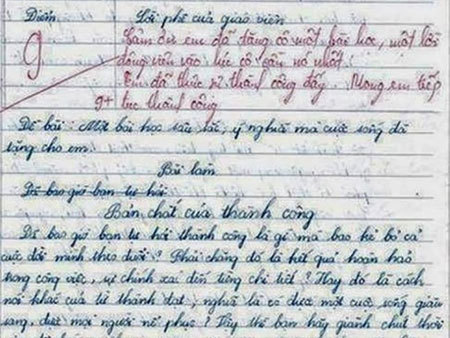 Điểm Lời phê của giáo viên
9 Cảm ơn em đã tặng cô một bài học, một lời
động viên vào lúc cô cần nó nhất!
Em đã thực sự thành công đấy. Mong em tiếp
9+ tục thành công
Đề bài: Một bài học sâu sắc, ý nghĩa mà cuộc sống đã
tặng cho em.
Bài làm
Đã bao giờ bạn tự hỏi
Bản chất của thành công
Đã bao giờ bạn tự hỏi thành công là gì mà bao kẻ bỏ cả
cuộc đời mình theo đuổi? Phải chăng đó là kết quả hoàn hảo
trong công việc, sự chính xác đến từng chi tiết? Hay đó là cách
nói khác của từ thành đạt, nghĩa là có được một cuộc sống giàu
sang, được mọi người nể phục? Vậy thì bạn hãy giành chút thời